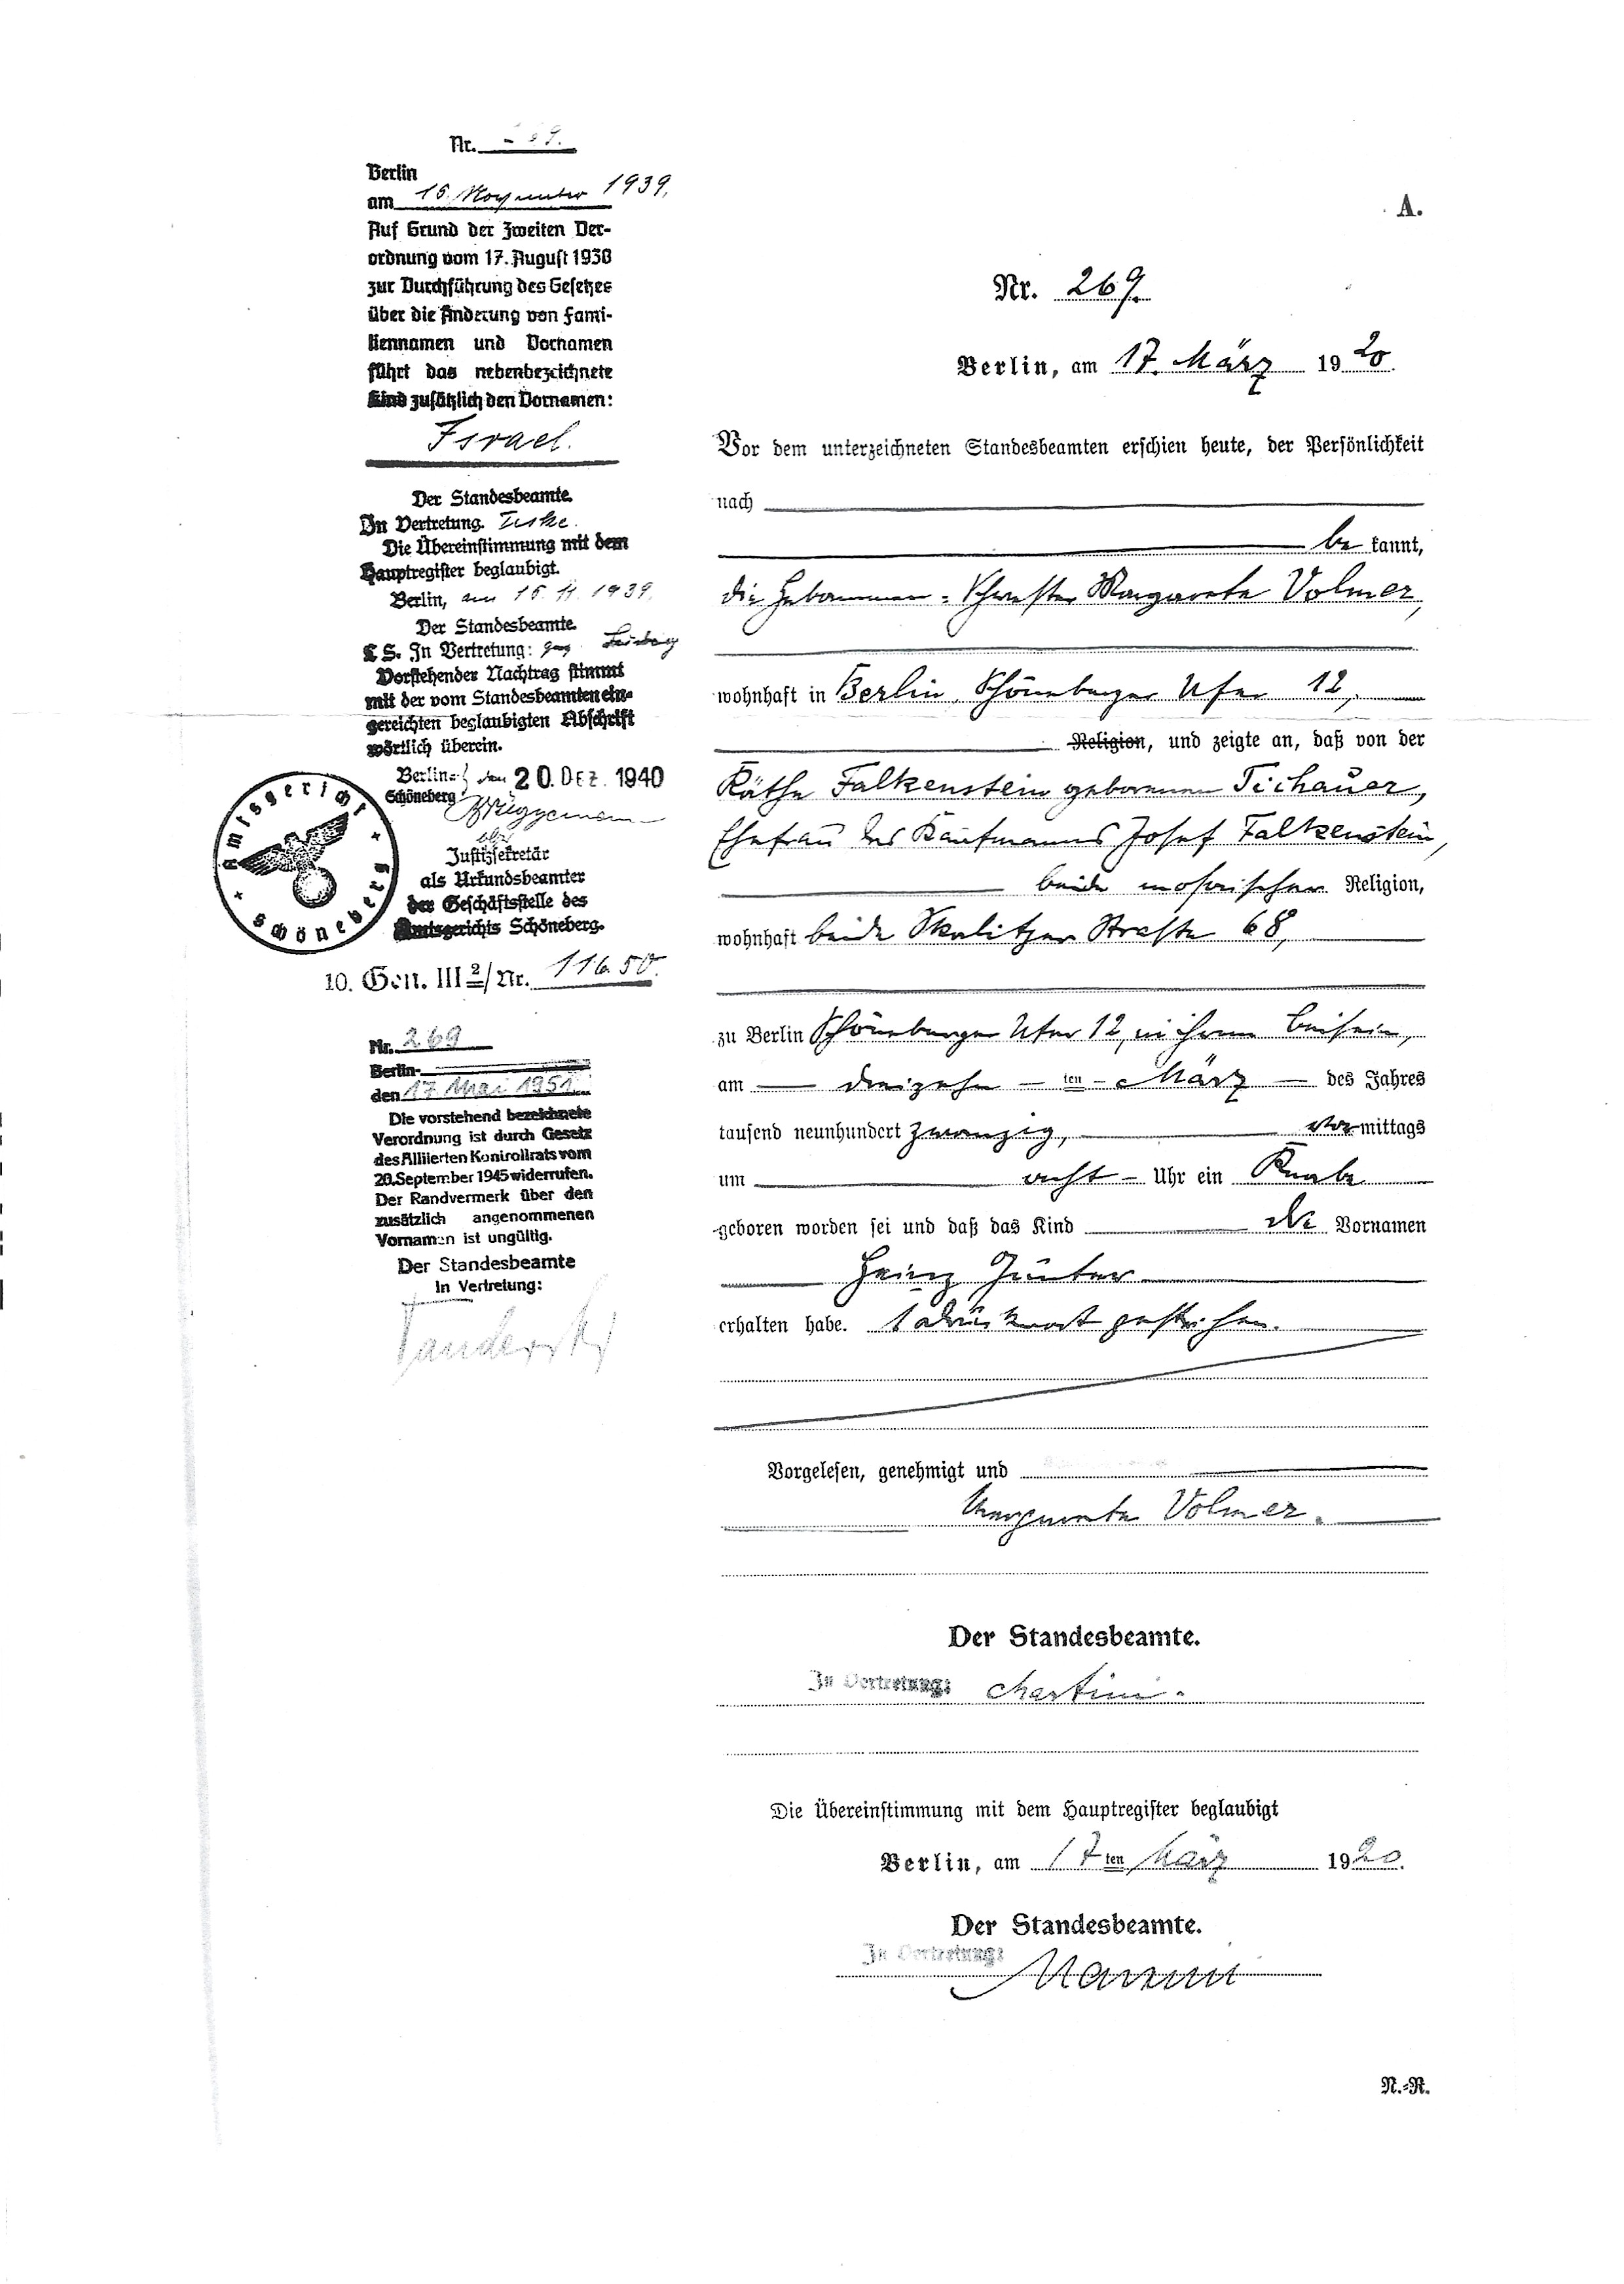 Nr.
Berlin
am 15. November 1939.
Auf Grund der Zweiten Ver-
ordnung vom 17. August 1938
zur Durchführung des Gesetzes
über die Änderung von Fami-
liennamen und Vornamen
führt das nebenbezeichnete
Kind zusätzlich den Vornamen:
Israel.
Der Standesbeamte.
In Vertretung.
Die Übereinstimmung mit dem
Hauptregister beglaubigt.
Berlin, am 15. 11. 1939.
Der Standesbeamte.
L S. In Vertretung: gez.
Vorstehender Nachtrag stimmt
mit der vom Standesbeamten ein-
gereichten beglaubigten Abschrift
wörtlich überein.
Berlin- den 20. DEZ. 1940
Schöneberg
Justizsekretär
als Urkundsbeamter
der Geschäftsstelle des
Amtsgerichts Schöneberg.
Amtsgericht
+ Schöneberg +
10. Gen. III 2/Nr. 116.50.
Nr. 269
Berlin-
den 17. Mai 1951
Die vorstehend bezeichnete
Verordnung ist durch Gesetz
des Alliierten Kontrollrats vom
20. September 1945 widerrufen.
Der Randvermerk über den
zusätzlich angenommenen
Vornamen ist ungültig.
Der Standesbeamte
In Vertretung:
A.
Nr. 269.
Berlin, am 17. März 1920.
Vor dem unterzeichneten Standesbeamten erschien heute, der Persönlichkeit
nach
be kannt,
die Hebammen-Schwester Margarete Volmer,
wohnhaft in Berlin, Schöneberger Ufer 12,
Religion, und zeigte an, daß von der
Käthe Falkenstein geborenen Tichauer,
Ehefrau des Kaufmanns Josef Falkenstein,
beide mosaischer Religion,
wohnhaft beide Skalitzer Straße 68,
zu Berlin Schöneberger Ufer 12, in ihrem Beisein,
am dreizehn ten März des Jahres
tausend neunhundert zwanzig, vormittags
um acht Uhr ein Knabe
geboren worden sei und daß das Kind die Vornamen
Heinz Günter
erhalten habe. 1 Druckwort gestrichen.
Vorgelesen, genehmigt und
Margarete Volmer.
Der Standesbeamte.
In Vertretung: Martini.
Die Übereinstimmung mit dem Hauptregister beglaubigt
Berlin, am 17ten März 1920.
Der Standesbeamte.
In Vertretung:
N.-R.